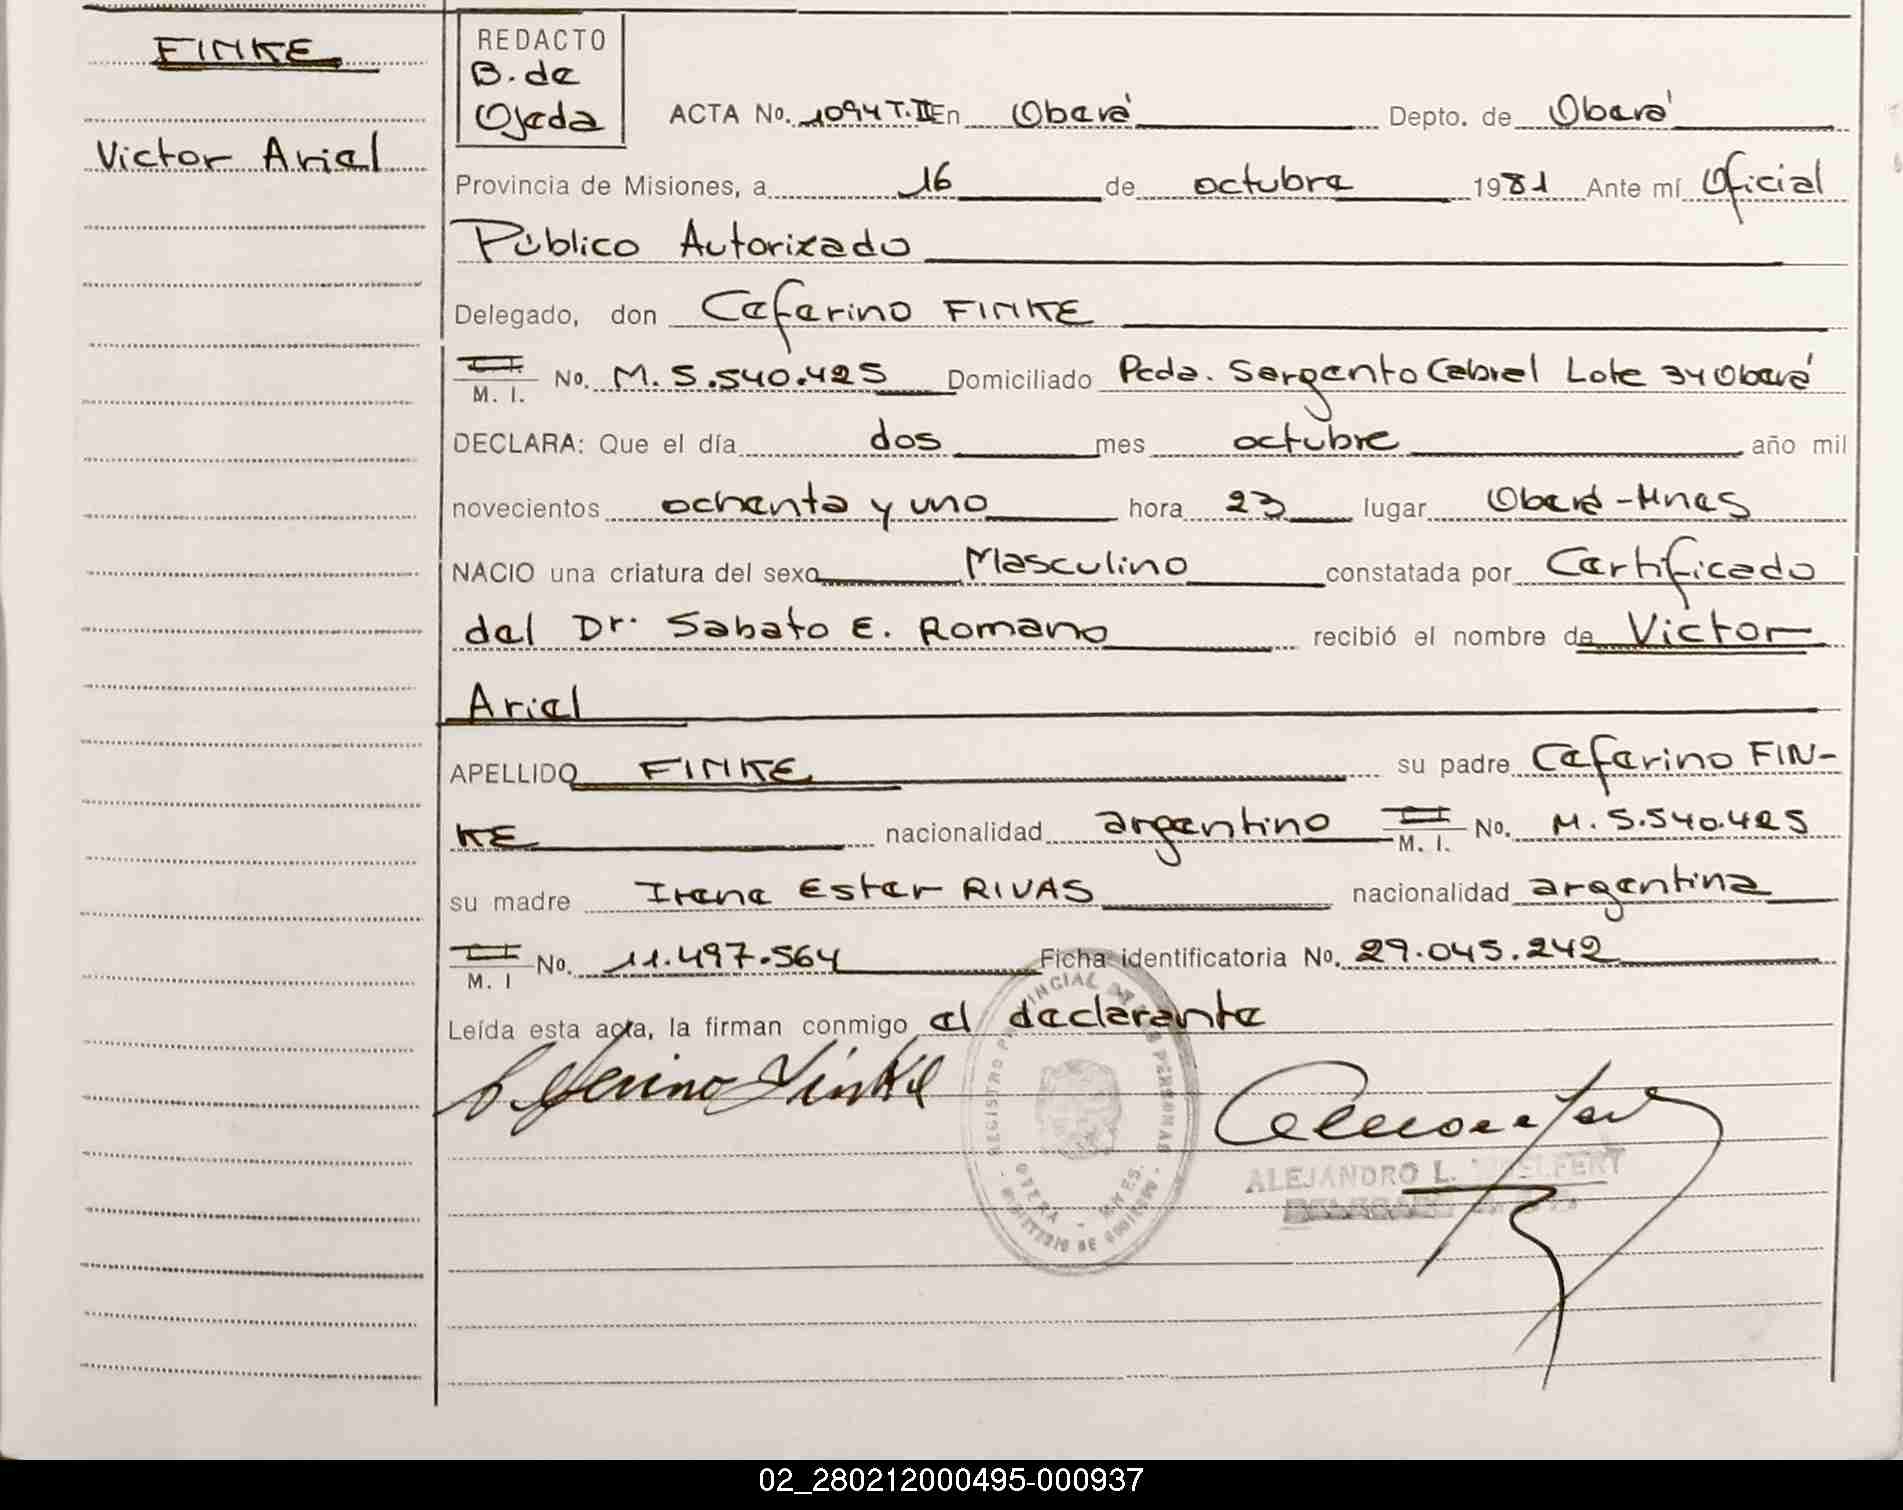 FINKE
Victor Ariel
REDACTO
B. de
Ojeda
ACTA No. 1094 T.II En Oberá Depto. de Oberá
Provincia de Misiones, a 16 de octubre 1981 Ante mí Oficial
Público Autorizado
Delegado, don Ceferino FINKE
C. I.
M. I. No. M. 5.540.425 Domiciliado Pcda. Sargento Cabral Lote 34 Oberá
DECLARA: Que el día dos mes octubre año mil
novecientos ochenta y uno hora 23 lugar Oberá-Mnes
NACIO una criatura del sexo Masculino constatada por Certificado
del Dr. Sabato E. Romano recibió el nombre de Victor
Ariel
APELLIDO FINKE su padre Ceferino FIN-
KE nacionalidad argentino C. I. M. I. No. M. 5.540.425
su madre Irene Ester RIVAS nacionalidad argentina
C. I.
M. I No. 11.497.564 Ficha identificatoria No. 29.045.242
Leída esta acta, la firman conmigo el declarante
Ceferino Finke
REGISTRO PROVINCIAL DE LAS PERSONAS
MINISTERIO DE GOBIERNO
ALEJANDRO L.
02_280212000495-000937